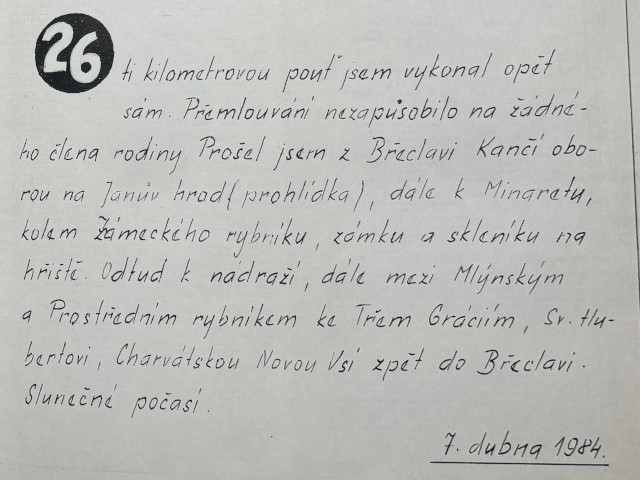 26 ti kilometrovou pouť jsem vykonal opět
sám. Přemlouvání nezapůsobilo na žádné-
ho člena rodiny. Prošel jsem z Břeclavi Kančí obo-
rou na Janův hrad (prohlídka), dále k Minaretu,
kolem Zámeckého rybníku, zámku a skleníku na
hřiště. Odtud k nádraží, dále mezi Mlýnským
a Prostředním rybníkem ke Třem Gráciím, Sv. Hu-
bertovi, Charvátskou Novou Vsí zpět do Břeclavi.
Slunečné počasí.
7. dubna 1984.